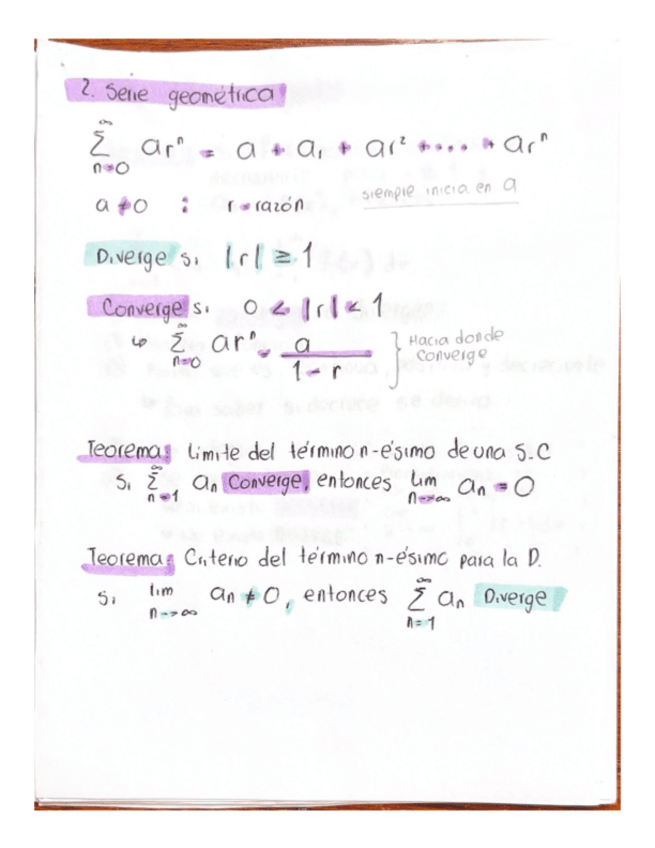 2. Serie geométrica
∞
Σ ar^n = a + a_r + ar² + .... + ar^n
n=0
a ≠ 0 : r = razón siempre inicia en a
Diverge si |r| ≥ 1
Converge si 0 < |r| < 1
↳ ∞ Σ n=0 ar^n = a / 1 - r } Hacia donde Converge
Teorema: Límite del término n-ésimo de una S.C
Si ∞ Σ n=1 a_n Converge, entonces lim n→∞ a_n = 0
Teorema: Criterio del término n-ésimo para la D.
Si lim n→∞ a_n ≠ 0, entonces ∞ Σ n=1 a_n Diverge